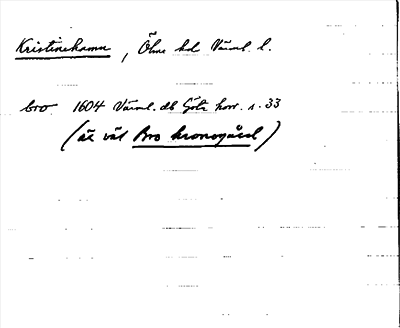 Kristinehamn, Ölme hd Värml. l.
bro 1604 Värml. db Göta hovr. s. 33
(är väl Bro kronogård)